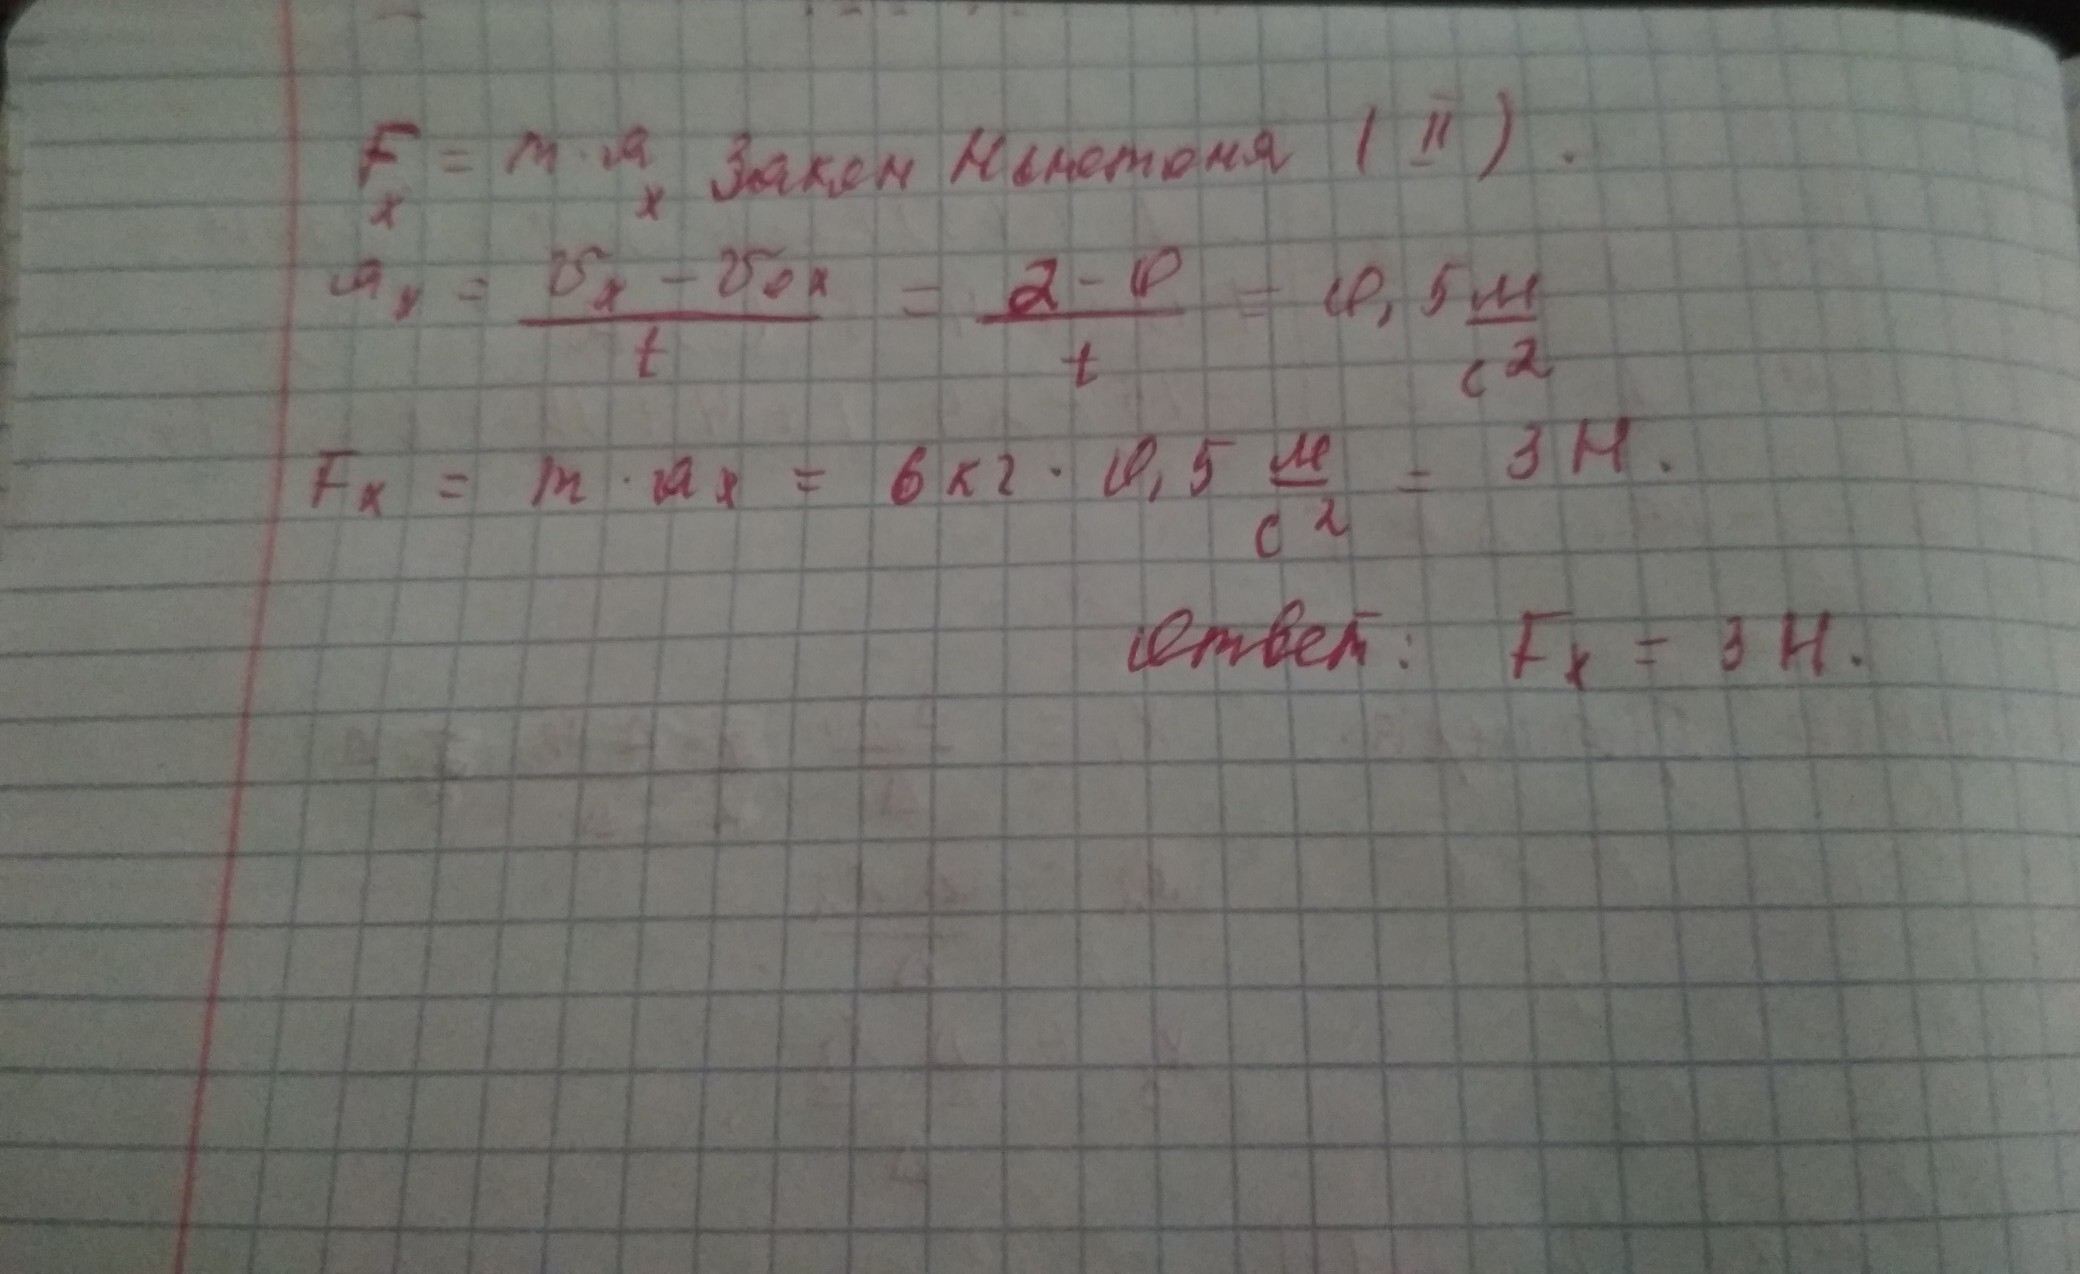 Fx = m · ax Закон Ньютона (II).
ax = (υx − υ0x)/t = (2 − 0)/t = 0,5 м/с²
Fx = m · ax = 6 кг · 0,5 м/с² = 3 Н.
Ответ: Fx = 3 Н.